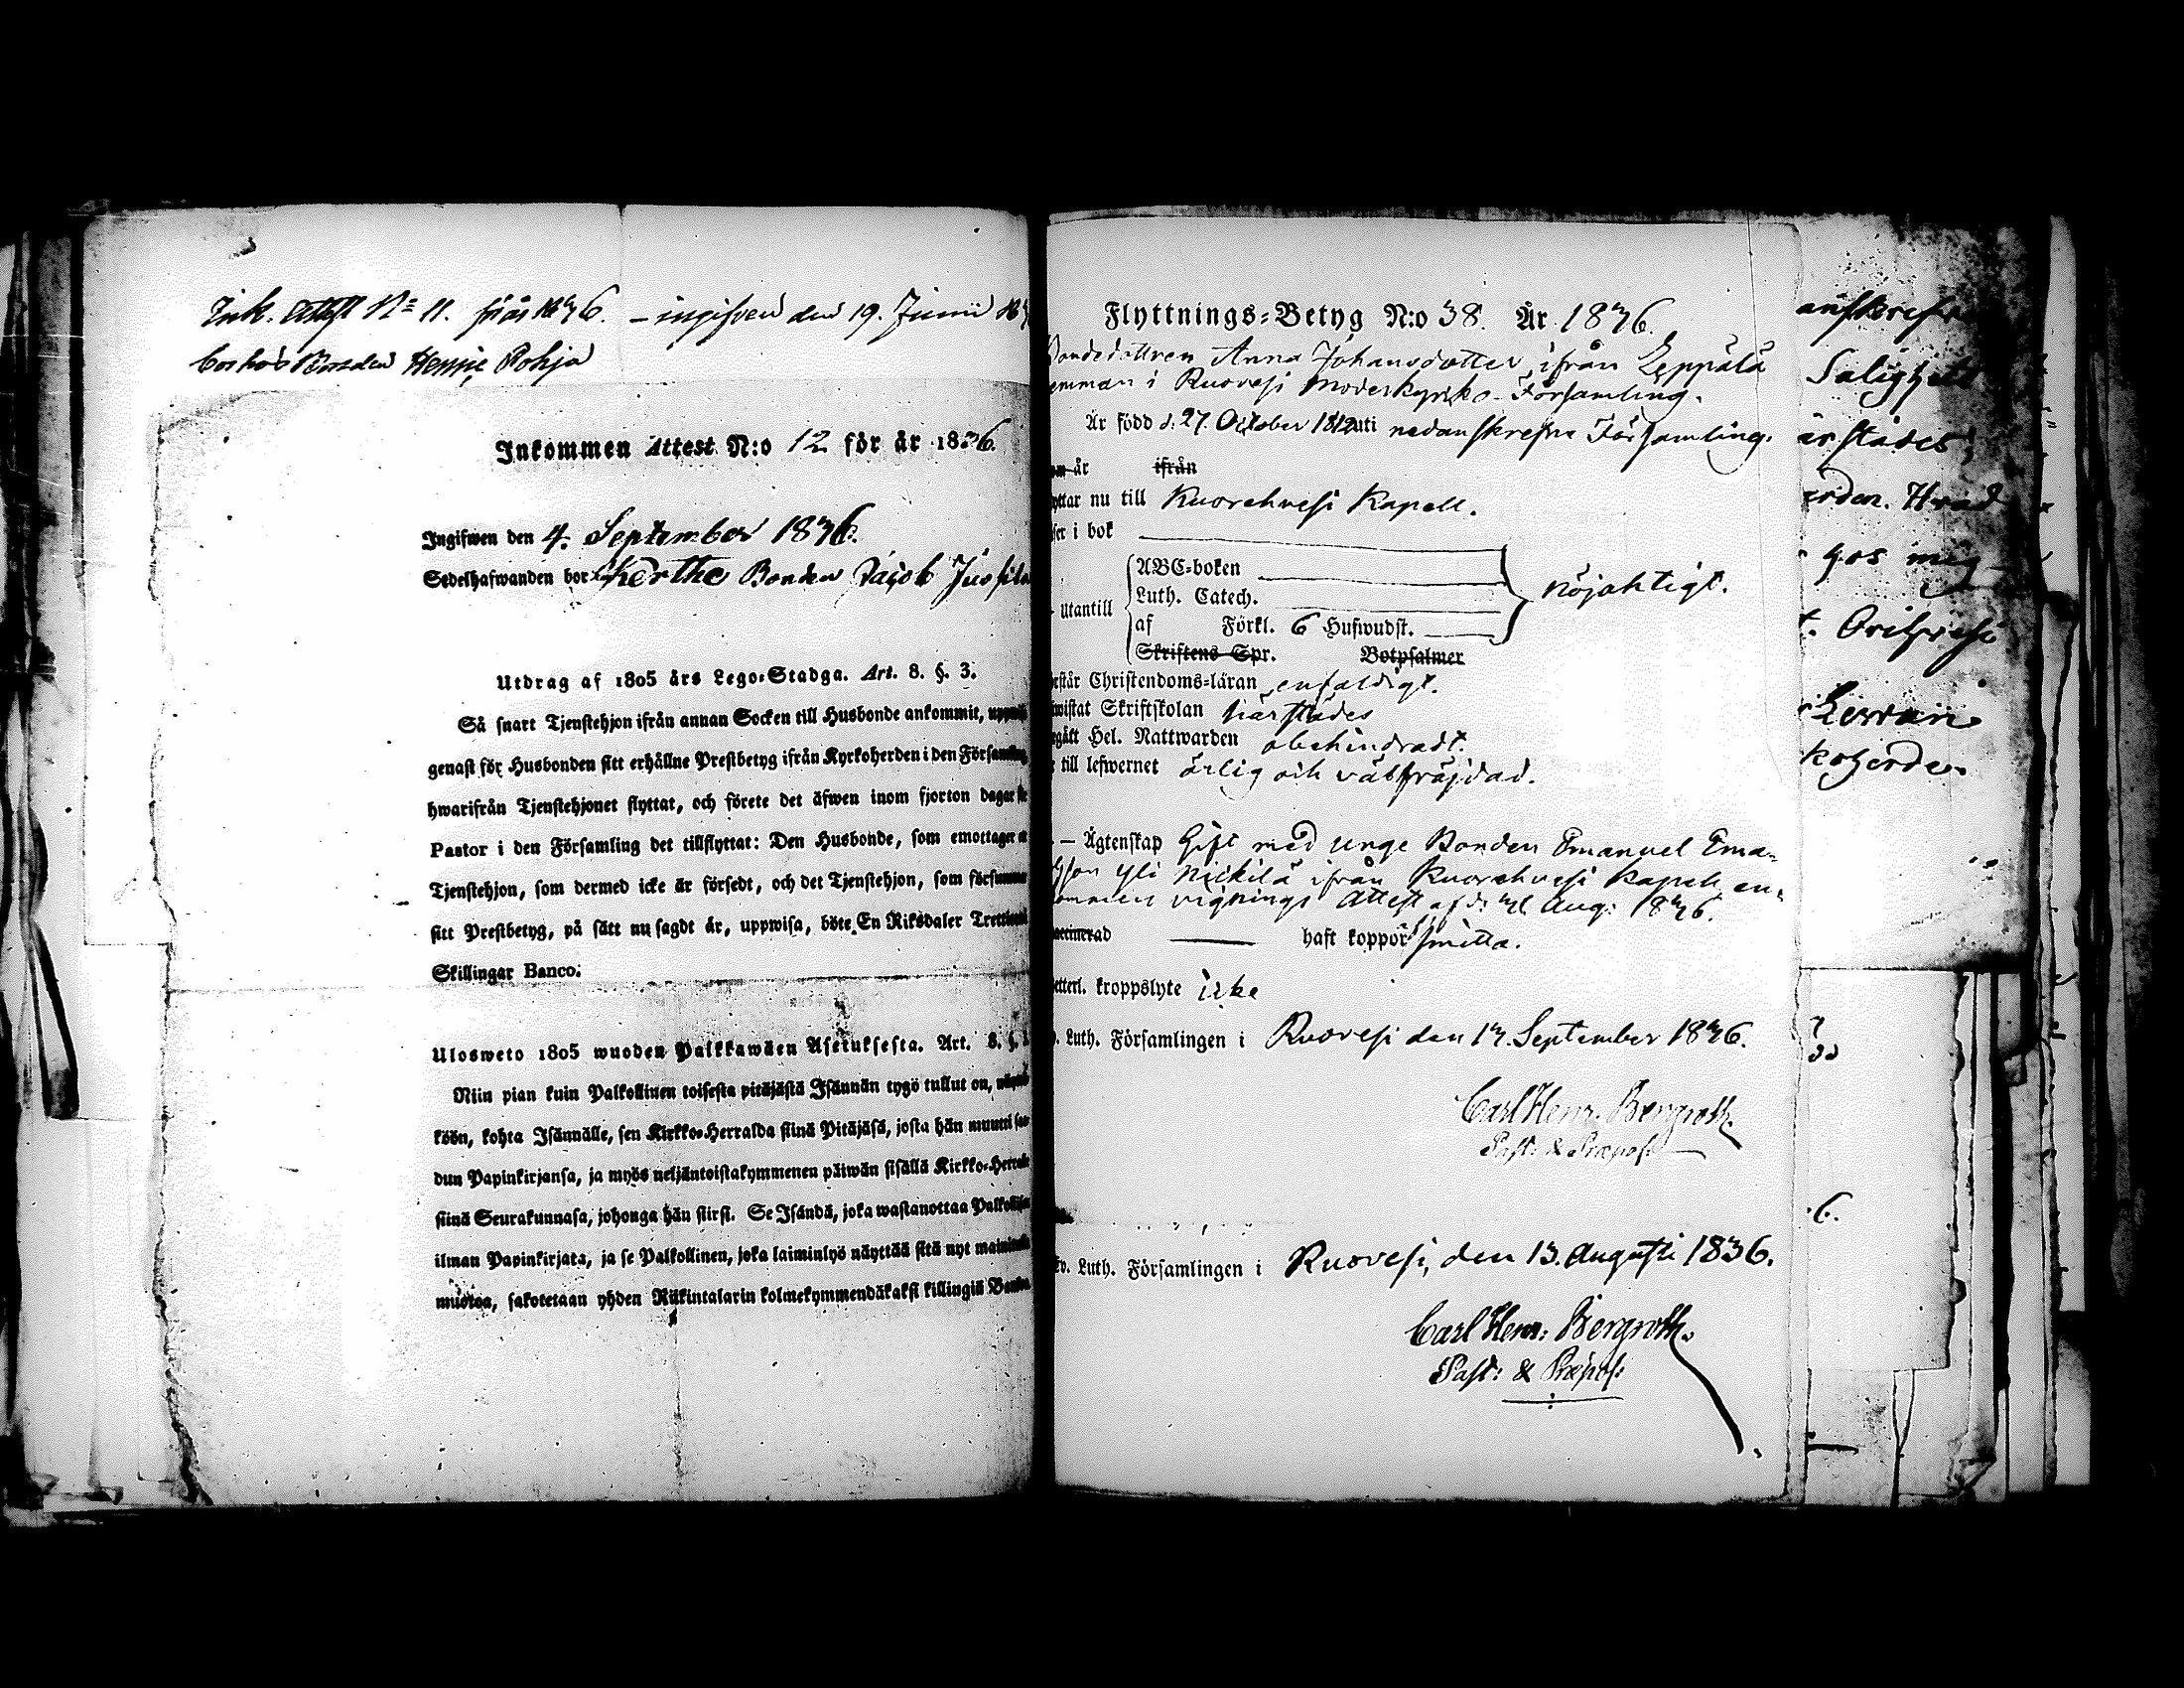 Ink. Attest No 11. för år 1836. – ingifven den 19. Junii
bor hos Bonden Heinie Pohja
Inkommen Attest N:o 12 för år 1836.
Ingifwen den 4. September 1836.
Sedelhafwanden bor Bonden Jacob
Utdrag af 1805 års Lego-Stadga. Art. 8. §. 3.
Så snart Tjenstehjon ifrån annan Socken till Husbonde ankommit,
genast för Husbonden sitt erhållne Prestbetyg ifrån Kyrkoherden i den
hwarifrån Tjenstehjonet flyttat, och förete det äfwen inom fjorton dagar
Pastor i den Församling det tillflyttat: Den Husbonde, som emottager
Tjenstehjon, som dermed icke är försedt, och det Tjenstehjon, som
sitt Prestbetyg, på sätt nu sagdt är, uppwisa, böte En Riksdaler
Skillingar Banco.
Ulosweto 1805 wuoden Palkkawäen Asetuksesta. Art. 8. §.
Niin pian kuin Palkollinen toisesta pitäjästä Isännän tygö tullut on,
köön, kohta Isännälle, sen Kirkko-Herralda siinä Pitäjäsä, josta hän muutti
dun Papinkirjansa, ja myös neljäntoistakymmenen päiwän sisällä
siinä Seurakunnasa, johonga hän siirsi. Se Isändä, joka wastanottaa
ilman Papinkirjata, ja se Palkollinen, joka laiminlyö näyttää sitä nyt
muotoa, sakotetaan yhden Riikintalarin kolmekymmendäkaksi killingiä
Flyttnings-Betyg N:o 38. År 1836.
Bondedottren Anna Johansdotter, ifrån Leppälä
emman i Ruovesi Moderkyrko-Församling.
Är född d: 27. October 1812 uti nedanskrefne Församling.
år ifrån
yttar nu till Kuorehvesi Kapell.
ser i bok
ABC-boken
nöjaktigt.
Luth. Catech.
Utantill
af Förkl. 6 Hufwudst.
Skriftens Spr. Botpsalmer
rstår Christendoms-läran enfaldigt.
wistat Skriftskolan härstädes
gått Hel. Nattwarden obehindradt.
till lefwernet ärlig och välfräjdad.
– Ägtenskap Gift med unge Bonden Emanuel Ema-
son Yli Mickilä ifrån Kuorehvesi Kapell, en-
vignings Attest af d: Aug: 1836.
haft koppor smitta.
etterl. kroppslyte icke
. Luth. Församlingen i Ruovesi den 13. September 1836.
Carl Henr. Bergroth.
Past: & Præpos:
v. Luth. Församlingen i Ruovesi, den 13. Augusti 1836.
Carl Henr: Bergroth.
Past: & Præpos:
Salighets
ärstädes
gos mig
Orihvesi
6.